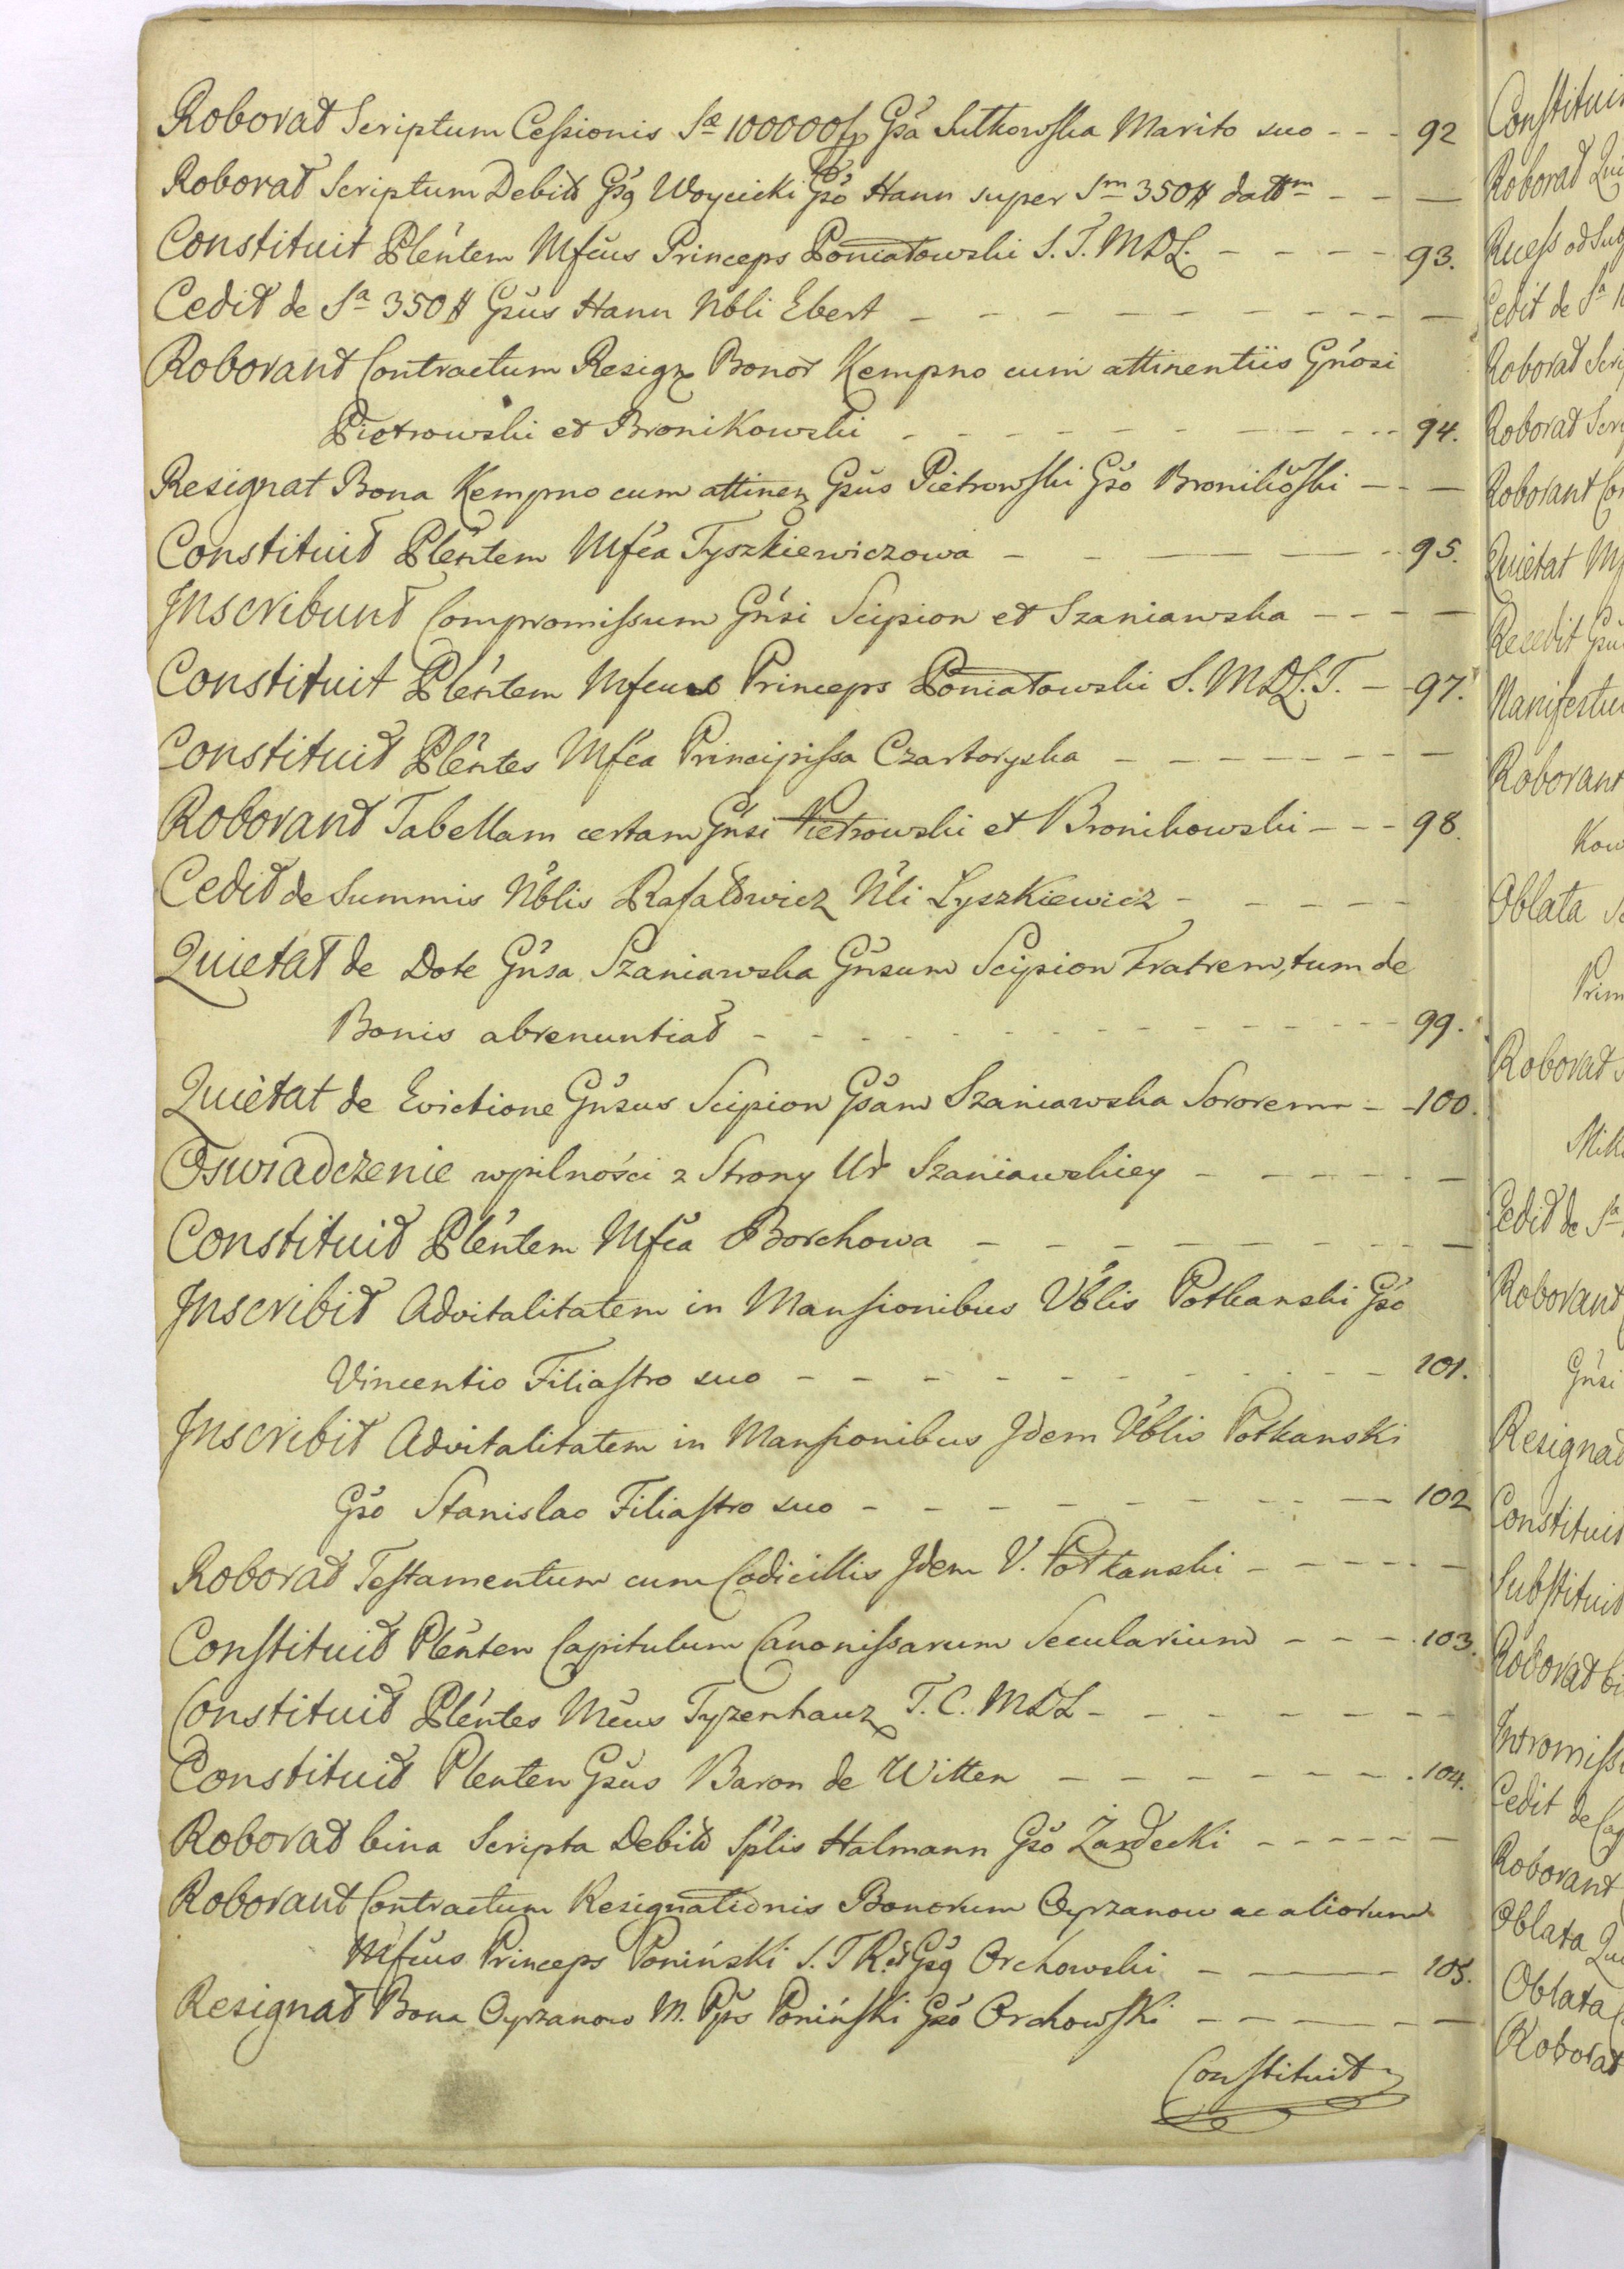 Roborat Scriptum Cessionis Sæ 100000 fp Gsa Sułkowska Marito suo - - - 92
Roborat Scriptum Debiti Gsg Woycicki Gso Hann super Sm 350 # datt m - - —
Constituit Plentem Mfcus Princeps Poniatowski S. T. MDL. - - - - 93.
Cedit de Sa 350 # Gsus Hann Nbli Ebert - - - - - - - - - —
Roborant Contractum Resigz Bonor Kempno cum attinentiis Gnosi
Piotrowski et Bronikowski - - - - - - - - - - 94.
Resignat Bona Kempno cum attinen Gsus Pietrowski Gso Bronikoski - - —
Constituit Plentem Mfca Tyszkiewiczowa - - - - - 95.
Inscribunt Compromissum Gnsi Scipion et Szaniawska - - - —
Constituit Plentem Mfcus Princeps Poniatowski S. MDL. T. - - 97.
Constituit Plentes Mfca Principissa Czartoryska - - - - - - —
Roborant Tabellam certam Gnsi Pietrowski et Bronikowski - - - 98.
Cedit de Summis Nblis Rafałowicz Nli Łyszkiewicz - - - - - -
Quietat de Dote Gnsa Szaniawska Gnsum Scipion Fratrem, tum de
Bonis abrenuntiat - - - - - - - - - - - 99.
Quietat de Evictione Gnsus Scipion Gsam Szaniawska Sororem - - 100.
Oswiadczenie wpilności z Strony Ur Szaniawskiey - - - - - —
Constituit Plentem Mfca Borchowa - - - - - - - - —
Inscribit Advitalitatem in Mansionibus Vblis Potkanski Gso
Vincentio Filiastro suo - - - - - - - - - 101.
Inscribit Advitalitatem in Mansionibus Idem Vblis Potkanski
Gso Stanislao Filiastro suo - - - - - - - - - 102
Roborat Testamentum cum Codicillis Idem V. Potkanski - - - - - —
Constituit Plenten Capitulum Canonissarum Secularium - - - 103.
Constituit Plentes Mcus Tyzenhauz T. C. MDL - - - - - - -
Constituit Plenten Gsus Baron de Witten - - - - - - - 104.
Roborat bina Scripta Debiti Splis Halmann Gso Żardecki - - - - - —
Roborant Contractum Resignationis Bonorum Oyrzanow ac aliorum
Mfcus Princeps Poniński S. T R. et Gsg Orchowski - - - 105.
Resignat Bona Oyrzanow M. Pps Poniński Gso Orchowski - - - - - —
Constituit
Constitui
Roborat
Cedit de Sa
Roborat
Roborat
Roborant
Quietat
Recedit
Roborant
Oblata
Roborat
Cedit de Sa
Roborant
Gnsi
Resignat
Constituit
Substituit
Roborat
Cedit de
Roborant
Oblata
Oblata
Roborat